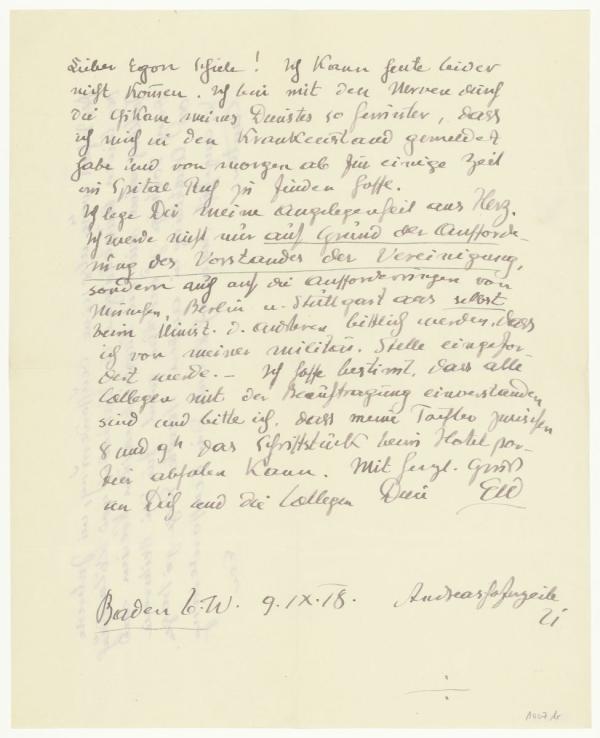 Lieber Egon Schiele! Ich kann heute leider
nicht kommen. Ich bin mit den Nerven durch
die Chikane meines Dienstes so herunter, dass
ich mich in den Krankenstand gemeldet
habe und von morgen ab für einige Zeit
im Spital Ruh zu finden hoffe.
Ich lege Dir meine Angelegenheit ans Herz.
Ich werde nicht nur auf Grund der Aufforde-
rung des Vorstandes der Vereinigung,
sondern auch auf die Aufforderungen von
München, Berlin u. Stuttgart aus selbst
beim Minist. d. bittlich werden, dass
ich von meiner militär. Stelle eingefor-
dert werde. – Ich hoffe bestimmt, dass alle
Collegen mit der Beauftragung einverstanden
sind und bitte ich, dass meine Tochter zwischen
8 und 9h das Schriftstück beim Hotelpor-
tier abholen kann. Mit herzl. Gruß
an Dich und die Collegen Dein
Baden b. W. 9. IX. 18. Andreas Hoferzeile
21